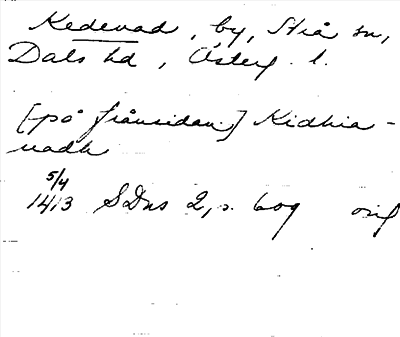 Kedevad, by, Strå sn,
Dals hd, Österg. l.
[på frånsidan:] Kidhia-
vadh
5/4
1413 SDns 2, s. 609 orig